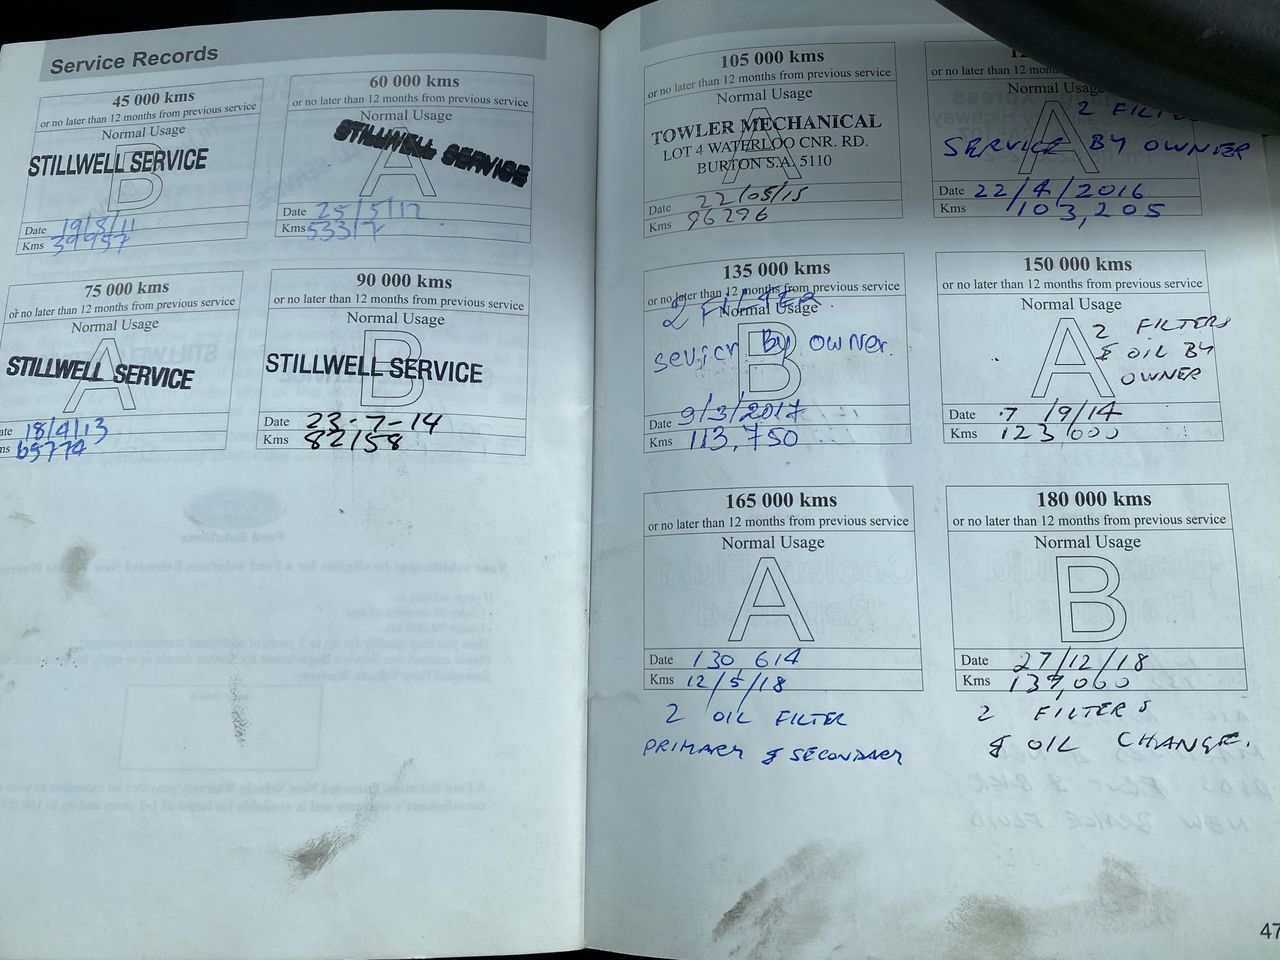 Service Records
45 000 kms
or no later than 12 months from previous service
Normal Usage
B
STILLWELL SERVICE
Date 19/8/11
Kms 39957
60 000 kms
or no later than 12 months from previous service
Normal Usage
A
STILLWELL SERVICE
Date 25/5/12
Kms 53317
75 000 kms
or no later than 12 months from previous service
Normal Usage
A
STILLWELL SERVICE
ate 18/4/13
ms 65774
90 000 kms
or no later than 12 months from previous service
Normal Usage
B
STILLWELL SERVICE
Date 23-7-14
Kms 82158
105 000 kms
or no later than 12 months from previous service
Normal Usage
A
TOWLER MECHANICAL
LOT 4 WATERLOO CNR. RD.
BURTON S.A. 5110
Date 22/05/15
Kms 96296
or no later than 12
Normal Usage
A
2
SERVICE BY OWNER
Date 22/4/2016
Kms 103,205
135 000 kms
or no later than 12 months from previous service
Normal Usage
B
2 FILTER.
sevicr By owner
Date 9/3/2017
Kms 113,750
150 000 kms
or no later than 12 months from previous service
Normal Usage
A
2 FILTERS
& OIL BY
OWNER
Date 7/9/14
Kms 123,000
165 000 kms
or no later than 12 months from previous service
Normal Usage
A
Date 130 614
Kms 12/5/18
2 OIL FILTER
PRIMARY & SECONDARY
180 000 kms
or no later than 12 months from previous service
Normal Usage
B
Date 27/12/18
Kms 139,060
2 FILTERS
& OIL CHANGE.
47